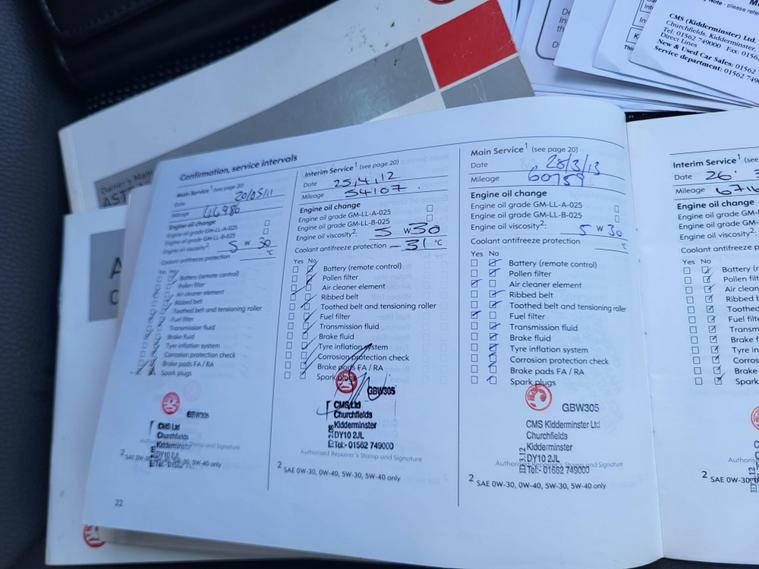 Note - please refer
CMS (Kidderminster) Ltd.
Churchfields, Kidderminster,
Tel: 01562 749000 Fax: 01562
Direct Lines:
New & Used Car Sales: 01562
Service department: 01562
Owner's Manual
Confirmation, service intervals
Main Service¹ (see page 20)
Date 20/05/11
Mileage 46980
Engine oil change
Engine oil grade GM-LL-A-025
Engine oil grade GM-LL-B-025
Engine oil viscosity²: 5 W 30
Coolant antifreeze protection °C
Yes No
Battery (remote control)
Pollen filter
Air cleaner element
Ribbed belt
Toothed belt and tensioning roller
Fuel filter
Transmission fluid
Brake fluid
Tyre inflation system
Corrosion protection check
Brake pads FA / RA
Spark plugs
GBW305
CMS Ltd
Churchfields
Kidderminster
DY10 2JL
Repairer's Stamp and Signature
² SAE 0W-40, 5W-30, 5W-40 only
22
Interim Service¹ (see page 20)
Date 25/4/12
Mileage 54107
Engine oil change
Engine oil grade GM-LL-A-025
Engine oil grade GM-LL-B-025
Engine oil viscosity²: 5 W 30
Coolant antifreeze protection -31 °C
Yes No
Battery (remote control)
Pollen filter
Air cleaner element
Ribbed belt
Toothed belt and tensioning roller
Fuel filter
Transmission fluid
Brake fluid
Tyre inflation system
Corrosion protection check
Brake pads FA / RA
Spark plugs
GBW305
CMS Ltd
Churchfields
Kidderminster
DY10 2JL
Tel:- 01562 749000
Authorised Repairer's Stamp and Signature
² SAE 0W-30, 0W-40, 5W-30, 5W-40 only
Main Service¹ (see page 20)
Date 28/3/13
Mileage 60759
Engine oil change
Engine oil grade GM-LL-A-025
Engine oil grade GM-LL-B-025
Engine oil viscosity²: 5 W 30
Coolant antifreeze protection °C
Yes No
Battery (remote control)
Pollen filter
Air cleaner element
Ribbed belt
Toothed belt and tensioning roller
Fuel filter
Transmission fluid
Brake fluid
Tyre inflation system
Corrosion protection check
Brake pads FA / RA
Spark plugs
GBW305
CMS Kidderminster Ltd
Churchfields
Kidderminster
DY10 2JL
Tel:- 01562 749000
² SAE 0W-30, 0W-40, 5W-30, 5W-40 only
Interim Service¹ (see
Date 26
Mileage 6716
Engine oil change
Engine oil grade GM-L
Engine oil grade GM-L
Engine oil viscosity²:
Coolant antifreeze p
Yes No
Battery (r
Pollen filt
Air clean
Ribbed b
Toothed
Fuel filt
Transm
Brake f
Tyre in
Corros
Brake
Spark
² SAE 0W-30,